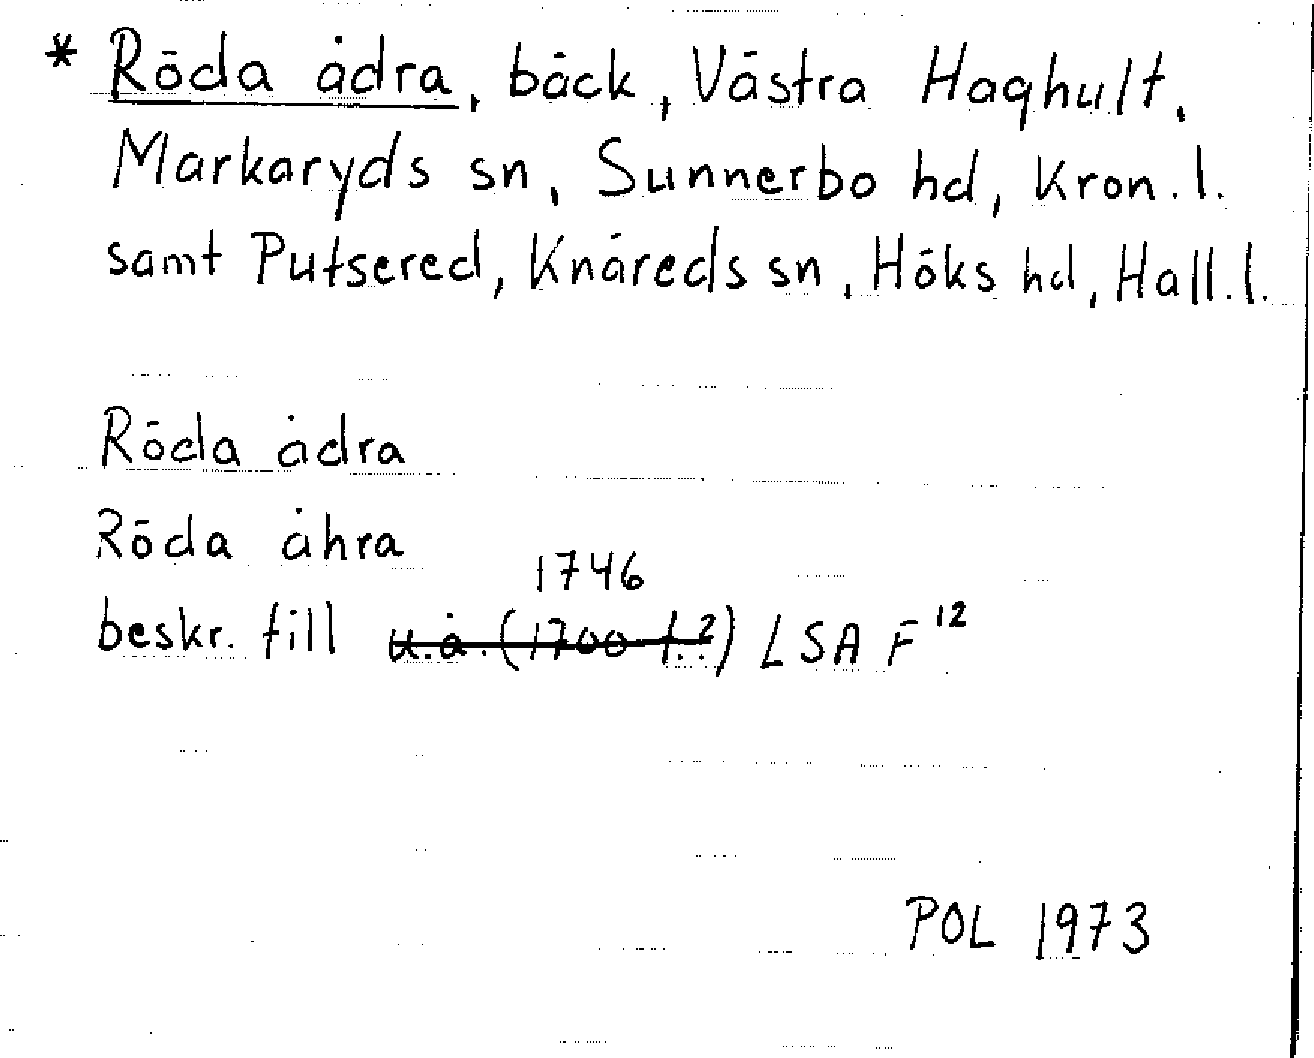 * Röda ådra, bäck, Västra Haghult,
Markaryds sn, Sunnerbo hd, Kron. l.
samt Putsered, Knäreds sn, Höks hd, Hall. l.
Röda ådra
Röda åhra
1746
beskr. till u.å. (1700-t.?) LSA F 12
POL 1973